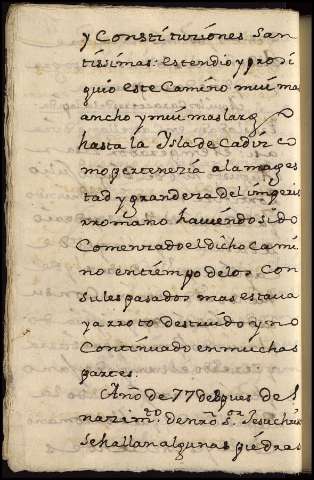 y Constituriones San
tissimas: estendio y prosi
guio este Camino mui mas
ancho y mui mas larg
hasta la Ysla de Cadiz co
mo pertenezia a la mages
tad y grandeza del imperi
rromano haviendo sido
Comenzado el dicho Cami
no en tiempo de los Con
sules pasados mas estava
ya rroto destruido y no
Continuado en muchas
partes.
Año de 77 despues de l
nazim.to de nro S.or Jesuchris
se hallan algunas piedras